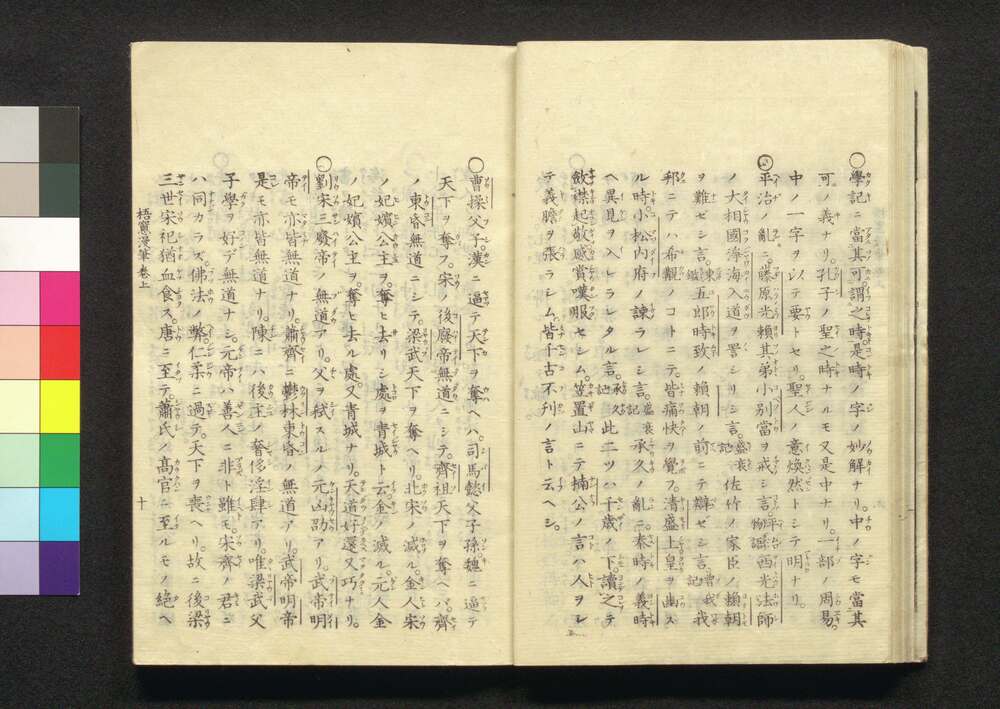 ○學記ニ當其可謂之時是時ノ字ノ妙解ナリ中ノ字モ當其
可ノ義ナリ孔子ノ聖之時ナルモ又是中ナリ一部ノ周易
中ノ一字ヲ以テ要トセリ聖人ノ意煥然トシテ明ナリ
○平治ノ亂ニ藤原光頼其弟小別當ヲ戒シ言平治物語西光法師
ノ大相國淨海入道ヲ詈シリシ言盛衰記佐竹ノ家臣ノ頼朝
ヲ難ゼシ言東鑑五郎時致ノ頼朝ノ前ニテ辯ゼシ言曽我記我
邦ニテハ希覯ノコトニテ皆痛快ヲ覺フ清盛上皇ヲ幽ス
ル時小松内府ノ諫ラレシ言盛衰記承久ノ亂ニ泰時ノ義時
ヘ異見ヲ入レラレタル言承久記此二ツハ千歳ノ下讀之テ
斂襟起敬感賞嘆服セシム笠置山ニテ楠公ノ言ハ人ヲシ
テ義膽ヲ張ラシム皆千古不刋ノ言ト云ヘシ
○曹操父子漢ニ逼テ天下ヲ奪ヘハ司馬懿父子孫魏ニ逼テ
天下ヲ奪フ宋ノ後廢帝無道ニシテ齊祖天下ヲ奪ヘバ齊
ノ東昏無道ニシテ梁武天下ヲ奪ヘリ北宋ノ滅ル金人宋
ノ妃嬪公主ヲ奪ヒ去リシ處ヲ青城ト云金ノ滅ル元人金
ノ妃嬪公主ヲ奪ヒ去ル處又青城ナリ天道好還又巧ナリ
○劉宋三廢帝ノ無道アリ父ヲ弑スルノ元凶劭アリ武帝明
帝モ亦皆無道ナリ蕭齊ニ鬱林東昏ノ無道アリ武帝明帝
是モ亦皆無道ナリ陳ニハ後主ノ奢侈淫肆アリ唯梁武父
子學ヲ好デ無道ナシ元帝ハ善人ニ非ト雖モ宋齊ノ君ニ
ハ同カラズ佛法ノ弊仁柔ニ過テ天下ヲ喪ヘリ故ニ後梁
三世宗祀猶血食ス唐ニ至テ蕭氏ノ髙官ニ至ルモノ絶ヘ
梧窻漫筆卷上
十